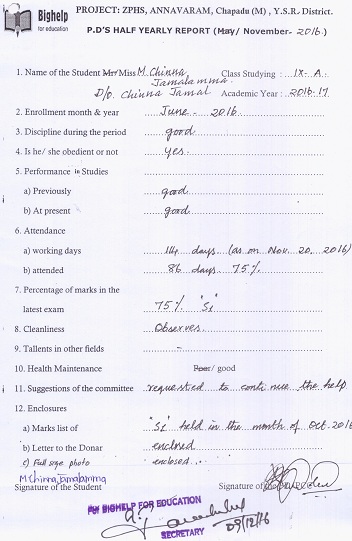 Bighelp
for education
PROJECT: ZPHS, ANNAVARAM, Chapadu (M) , Y.S.R. District.
P.D'S HALF YEARLY REPORT (May/ November- 2016.)
1. Name of the Student Mr/ Miss M. Chinna Jamalamma Class Studying : IX - A.
D/o. Chinna Jamal Academic Year : 2016-17
2. Enrollment month & year June - 2016
3. Discipline during the period good
4. Is he/ she obedient or not yes.
5. Performance in Studies
a) Previously good
b) At present good
6. Attendance
a) working days 114 days (as on Nov. 20, 2016)
b) attended 86 days. 75%
7. Percentage of marks in the
latest exam 75% "S1"
8. Cleanliness Observes.
9. Tallents in other fields -
10. Health Maintenance Poor/ good
11. Suggestions of the committee requested to continue the help
12. Enclosures
a) Marks list of "S1" held in the month of Oct. 2016
b) Letter to the Donar enclosed
c) Full size photo enclosed
M Chinna Jamalamma
Signature of the Student Signature of the
For BIGHELP FOR EDUCATION
SECRETARY 09/12/16